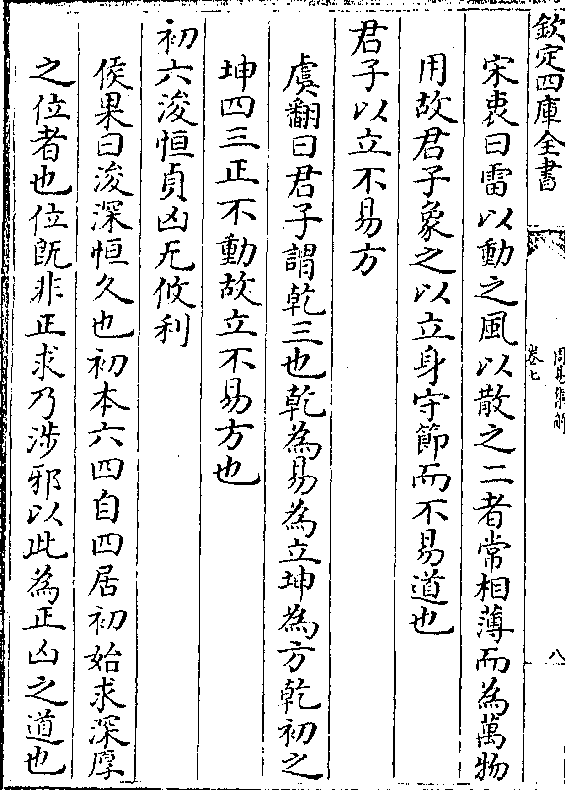 欽定四庫全書
周易集解
卷七
八
宋衷曰雷以動之風以散之二者常相薄而為萬物
用故君子象之以立身守節而不易道也
君子以立不易方
虞翻曰君子謂乾三也乾為易為立坤為方乾初之
坤四三正不動故立不易方也
初六浚恒貞凶无攸利
侯果曰浚深恒久也初本六四自四居初始求深厚
之位者也位既非正求乃涉邪以此為正凶之道也